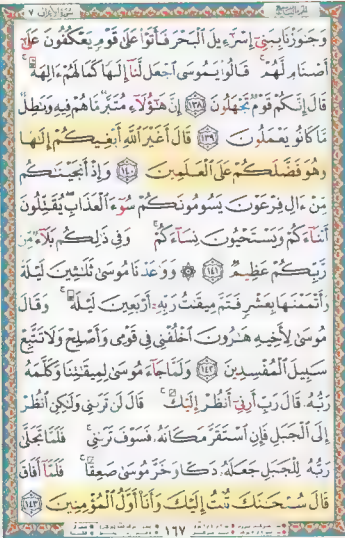 سورة الأعراف ٧
وَجَٰوَزْنَا بِبَنِىٓ إِسْرَٰٓءِيلَ ٱلْبَحْرَ فَأَتَوْا۟ عَلَىٰ قَوْمٍ يَعْكُفُونَ عَلَىٰٓ
أَصْنَامٍ لَّهُمْ ۚ قَالُوا۟ يَٰمُوسَى ٱجْعَل لَّنَآ إِلَٰهًا كَمَا لَهُمْ ءَالِهَةٌ ۚ
قَالَ إِنَّكُمْ قَوْمٌ تَجْهَلُونَ ﴿١٣٨﴾ إِنَّ هَٰٓؤُلَآءِ مُتَبَّرٌ مَّا هُمْ فِيهِ وَبَٰطِلٌ
مَّا كَانُوا۟ يَعْمَلُونَ ﴿١٣٩﴾ قَالَ أَغَيْرَ ٱللَّهِ أَبْغِيكُمْ إِلَٰهًا
وَهُوَ فَضَّلَكُمْ عَلَى ٱلْعَٰلَمِينَ ﴿١٤٠﴾ وَإِذْ أَنجَيْنَٰكُم
مِّنْ ءَالِ فِرْعَوْنَ يَسُومُونَكُمْ سُوٓءَ ٱلْعَذَابِ ۖ يُقَتِّلُونَ
أَبْنَآءَكُمْ وَيَسْتَحْيُونَ نِسَآءَكُمْ ۚ وَفِى ذَٰلِكُم بَلَآءٌ مِّن
رَّبِّكُمْ عَظِيمٌ ﴿١٤١﴾ ۞ وَوَٰعَدْنَا مُوسَىٰ ثَلَٰثِينَ لَيْلَةً
وَأَتْمَمْنَٰهَا بِعَشْرٍ فَتَمَّ مِيقَٰتُ رَبِّهِۦٓ أَرْبَعِينَ لَيْلَةً ۚ وَقَالَ
مُوسَىٰ لِأَخِيهِ هَٰرُونَ ٱخْلُفْنِى فِى قَوْمِى وَأَصْلِحْ وَلَا تَتَّبِعْ
سَبِيلَ ٱلْمُفْسِدِينَ ﴿١٤٢﴾ وَلَمَّا جَآءَ مُوسَىٰ لِمِيقَٰتِنَا وَكَلَّمَهُۥ
رَبُّهُۥ قَالَ رَبِّ أَرِنِىٓ أَنظُرْ إِلَيْكَ ۚ قَالَ لَن تَرَىٰنِى وَلَٰكِنِ ٱنظُرْ
إِلَى ٱلْجَبَلِ فَإِنِ ٱسْتَقَرَّ مَكَانَهُۥ فَسَوْفَ تَرَىٰنِى ۚ فَلَمَّا تَجَلَّىٰ
رَبُّهُۥ لِلْجَبَلِ جَعَلَهُۥ دَكًّا وَخَرَّ مُوسَىٰ صَعِقًا ۚ فَلَمَّآ أَفَاقَ
قَالَ سُبْحَٰنَكَ تُبْتُ إِلَيْكَ وَأَنَا۠ أَوَّلُ ٱلْمُؤْمِنِينَ ﴿١٤٣﴾
١٦٧